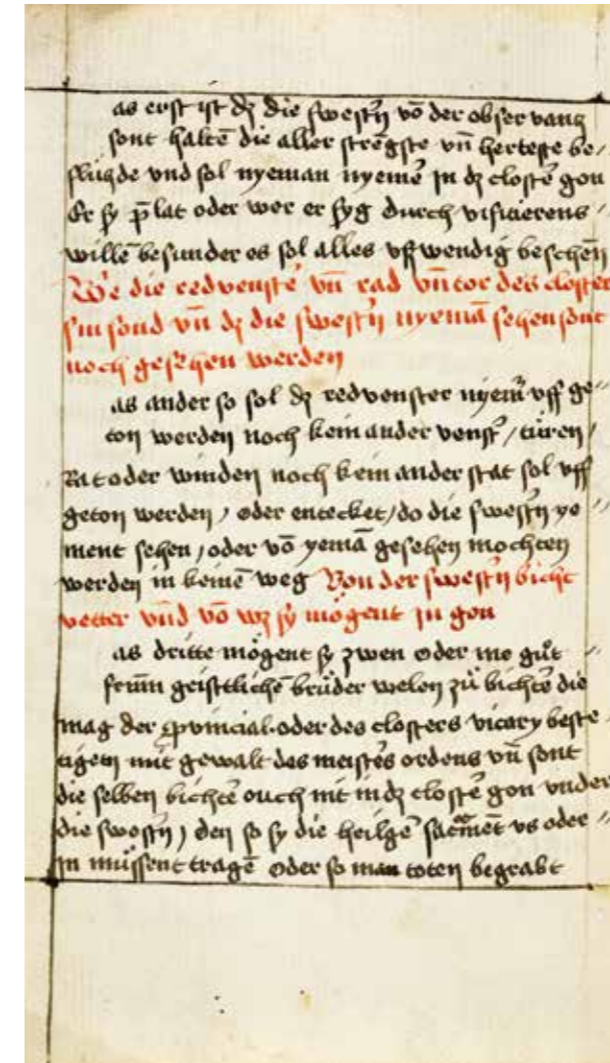 as erst ist dz die swestn vō der obseruantz
sont haltē die aller strēgste vn̄ herteste be/
slüszde vnd sol nyeman nyemē in dz clostē gon
Er sy p̄lat oder wer er syg durch visitierens
willē besunder es sol alles vsswendig beschen
Wie die redvenstē vn̄ rad vn̄ tor des closter
sin sond vn̄ dz die swestn nyemā sehen sont
noch gesehen werden
as ander so sol dz redvenster nyem̄ vff ge
ton werden noch kein ander venst / türen /
Rat oder winden noch kein ander stat sol vff
geton werden / oder entecket / do die swestn ye
ment sehen / oder vō yemā gesehen mochten
werden in keinē weg Von der swestn bicht
vetter vnd vō wz sy mögent in gon
as dritte mögent sy zwen oder me gůt
frum̄ geistlichē brüder welen zů bichtē die
mag der p̄uincial oder des closters vicary beste
tigen mit gewalt des meistēs ordens vn̄ sont
die selben bichtē ouch nit in dz clostē gon vnder
die swestn / den so sy die heilgē sacm̄ēt vs oder
in müssent tragē oder so man toten begrabt